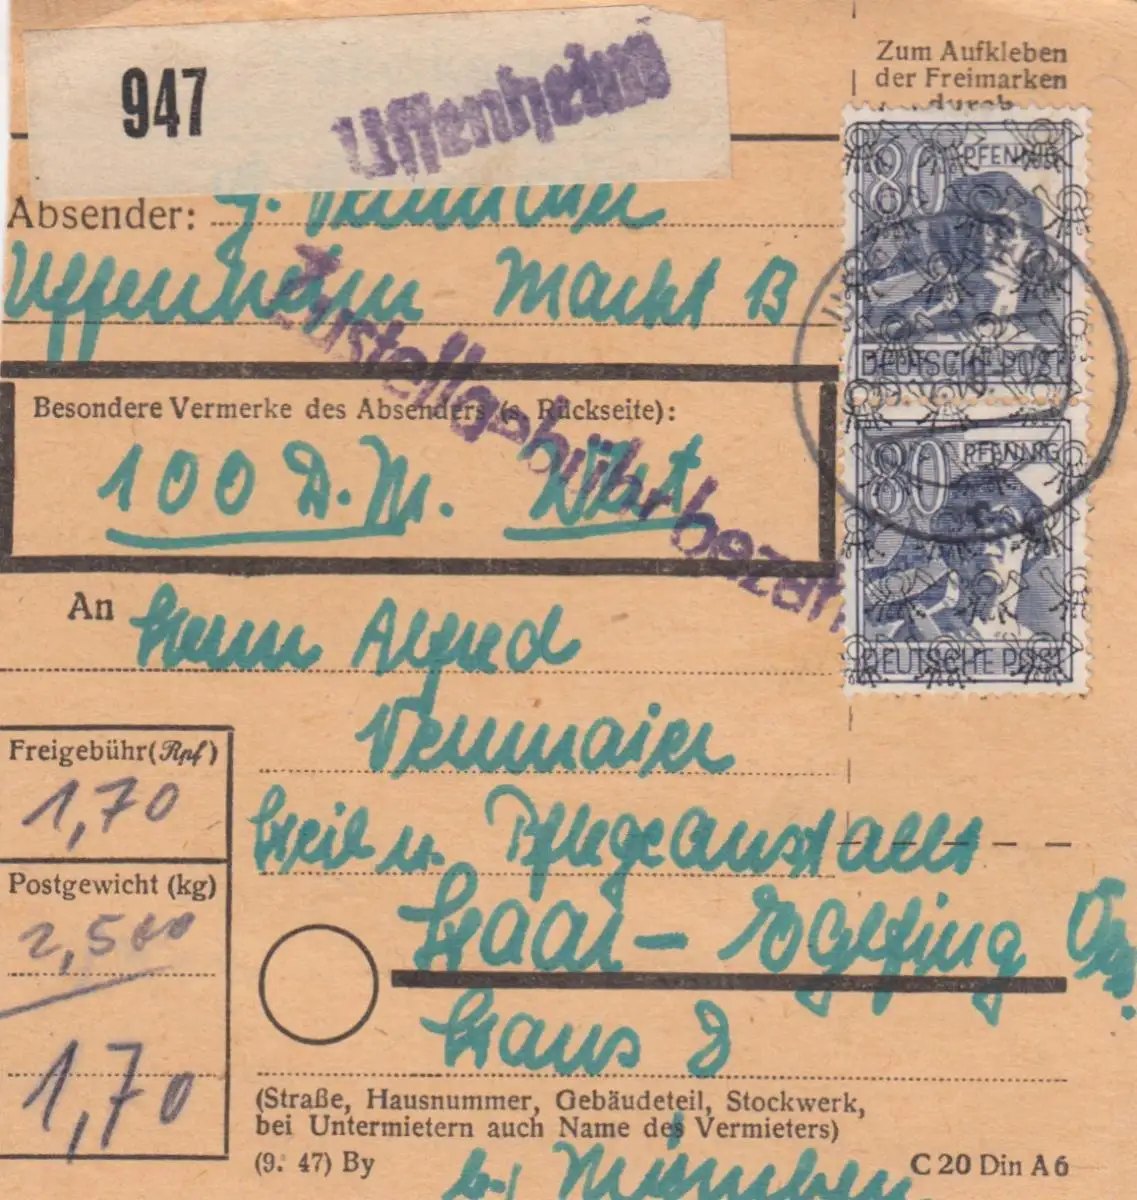 947
Uffenheim
Zum Aufkleben
der Freimarken
durch
Absender:
Uffenheim Markt B
80 PFENNIG
DEUTSCHE POST
80 PFENNIG
DEUTSCHE POST
Zustellgebühr bezahlt
Besondere Vermerke des Absenders (s. Rückseite):
100 D.M. Wert
An Herrn Alfred
Vennmaier
Heil u. Pflegeanstallt
Haar - Eglfing
Haus 8
Freigebühr (Rpf)
1,70
Postgewicht (kg)
2,500
1,70
(Straße, Hausnummer, Gebäudeteil, Stockwerk,
bei Untermietern auch Name des Vermieters)
(9. 47) By
C 20 Din A 6
bei München